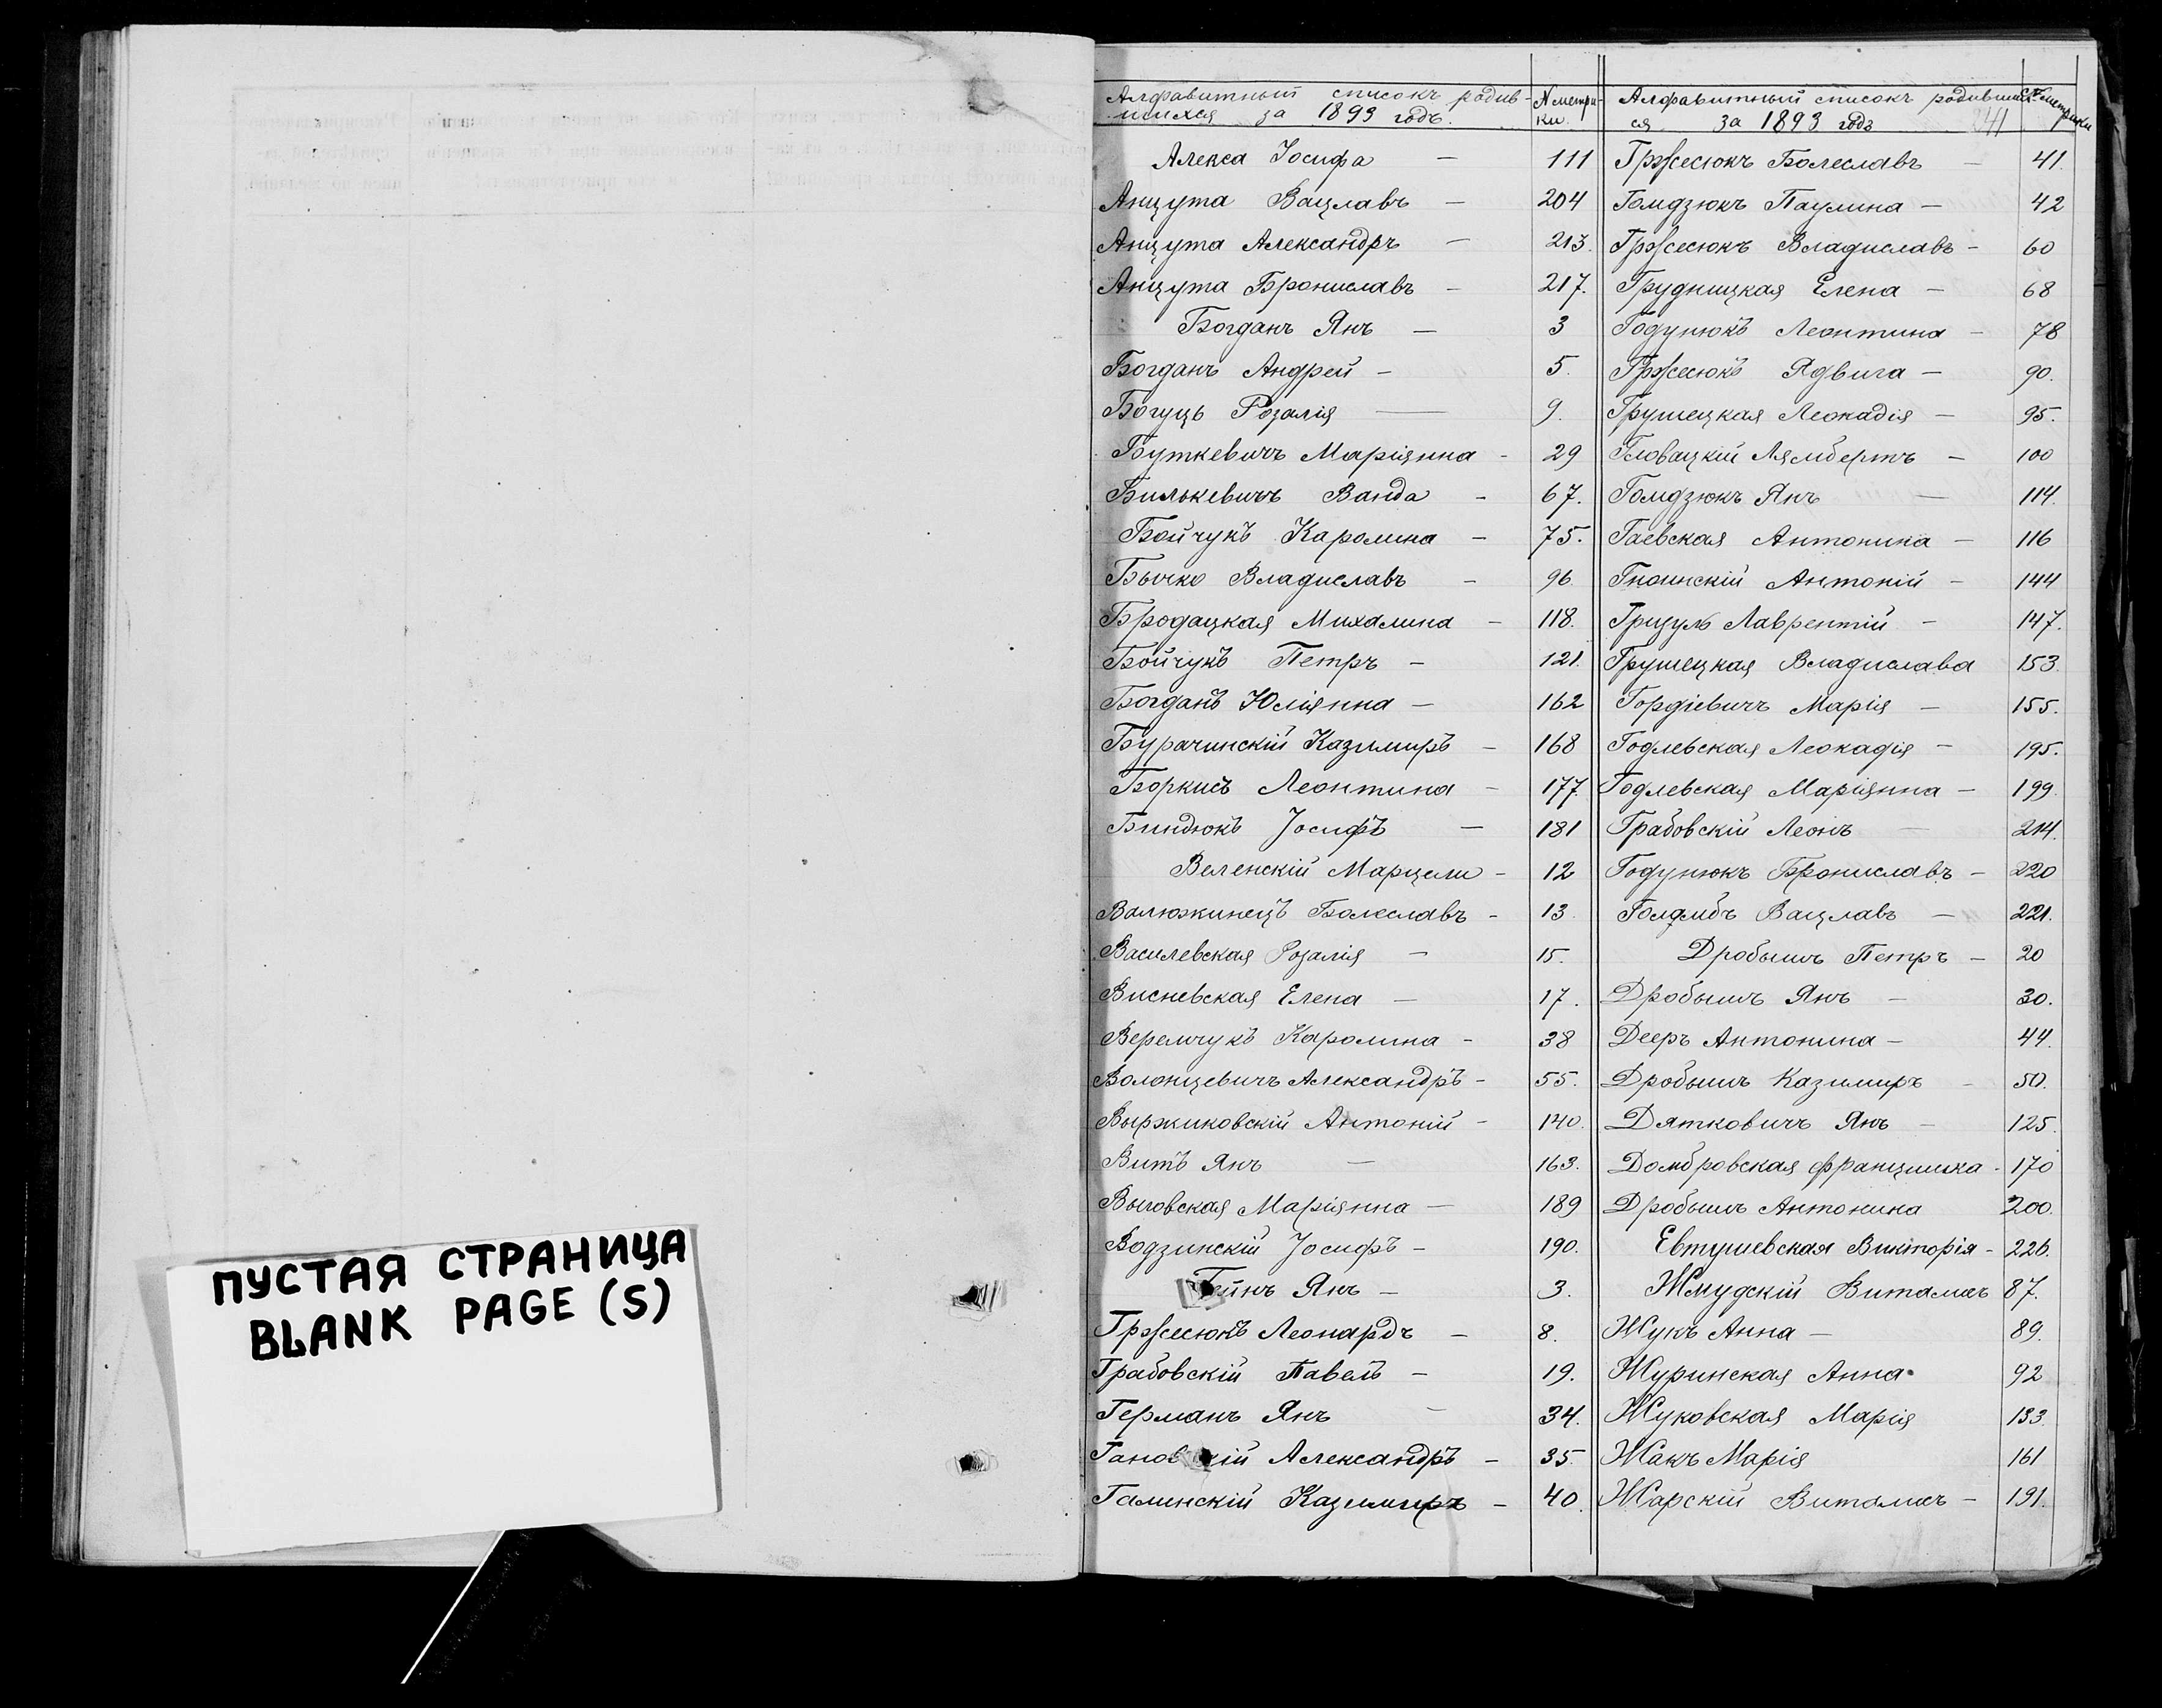 ПУСТАЯ СТРАНИЦА
BLANK PAGE (S)
Алфавитный списокъ родив-
шихся за 1893 годъ.
№ метри-
ки
Алекса Іосифа — 111
Анцута Вацлавъ — 204
Анцута Александръ — 213.
Анцута Брониславъ — 217.
Богданъ Янъ — 3
Богданъ Андрей — 5.
Богуцъ Розалія — 9.
Буткевичъ Маріянна - 29
Билькевичъ Ванда - 67.
Бойчукъ Каролина - 75.
Бычко Владиславъ - 96.
Бродацкая Михалина - 118.
Бойчукъ Петръ - 121.
Богданъ Юліянна - 162
Бурачинскій Казимиръ - 168
Боркисъ Леонтина - 177.
Биндюкъ Іосифъ — 181
Веленскій Марцели - 12
Валюжинецъ Болеславъ - 13.
Василевская Розалія — 15.
Висневская Елена — 17.
Веремчукъ Каролина - 38
Волонцевичъ Александръ - 55.
Выржиковскій Антоній - 140.
Витъ Янъ — 163.
Выговская Маріянна — 189
Водзинскій Іосифъ - 190.
Гейнъ Янъ — 3.
Гржесюкъ Леонардъ — 8.
Грабовскій Павелъ - 19.
Германъ Янъ — 34.
Александръ - 35.
Галинскій Казимиръ - 40.
Алфавитный списокъ родивших-
ся за 1893 годъ
241
№ метрики
Гржесюкъ Болеславъ — 41.
Гомдзюкъ Паулина — 42
Гржесюкъ Владиславъ - 60
Грудницкая Елена — 68
Годунюкъ Леонтина — 78
Гржесюкъ Ядвига — 90.
Грушецкая Леокадія — 95.
Гловацкій Лямбертъ — 100
Гомдзюкъ Янъ — 114.
Гаевская Антонина — 116
Гноинскій Антоній - 144
Грицуль Лаврентій - 147.
Грушецкая Владислава 153.
Гордіевичъ Марія — 155.
Годлевская Леокадія - 195.
Годлевская Маріянна — 199.
Грабовскій Леонъ — 214.
Годунюкъ Брониславъ - 220
Вацлавъ — 221.
Дробышъ Петръ — 20
Дробышъ Янъ — 30.
Дееръ Антонина — 44.
Дробышъ Казимиръ - 50.
Дятковичъ Янъ — 125.
Домбровская Францишка - 170
Дробышъ Антонина 200.
Евтушевская Викторія - 226.
Жмудскій Виталисъ 87.
Жукъ Анна — 89.
Журинская Анна 92
Жуковская Марія 133.
Жакъ Марія 161
Жарскій Виталисъ — 191.